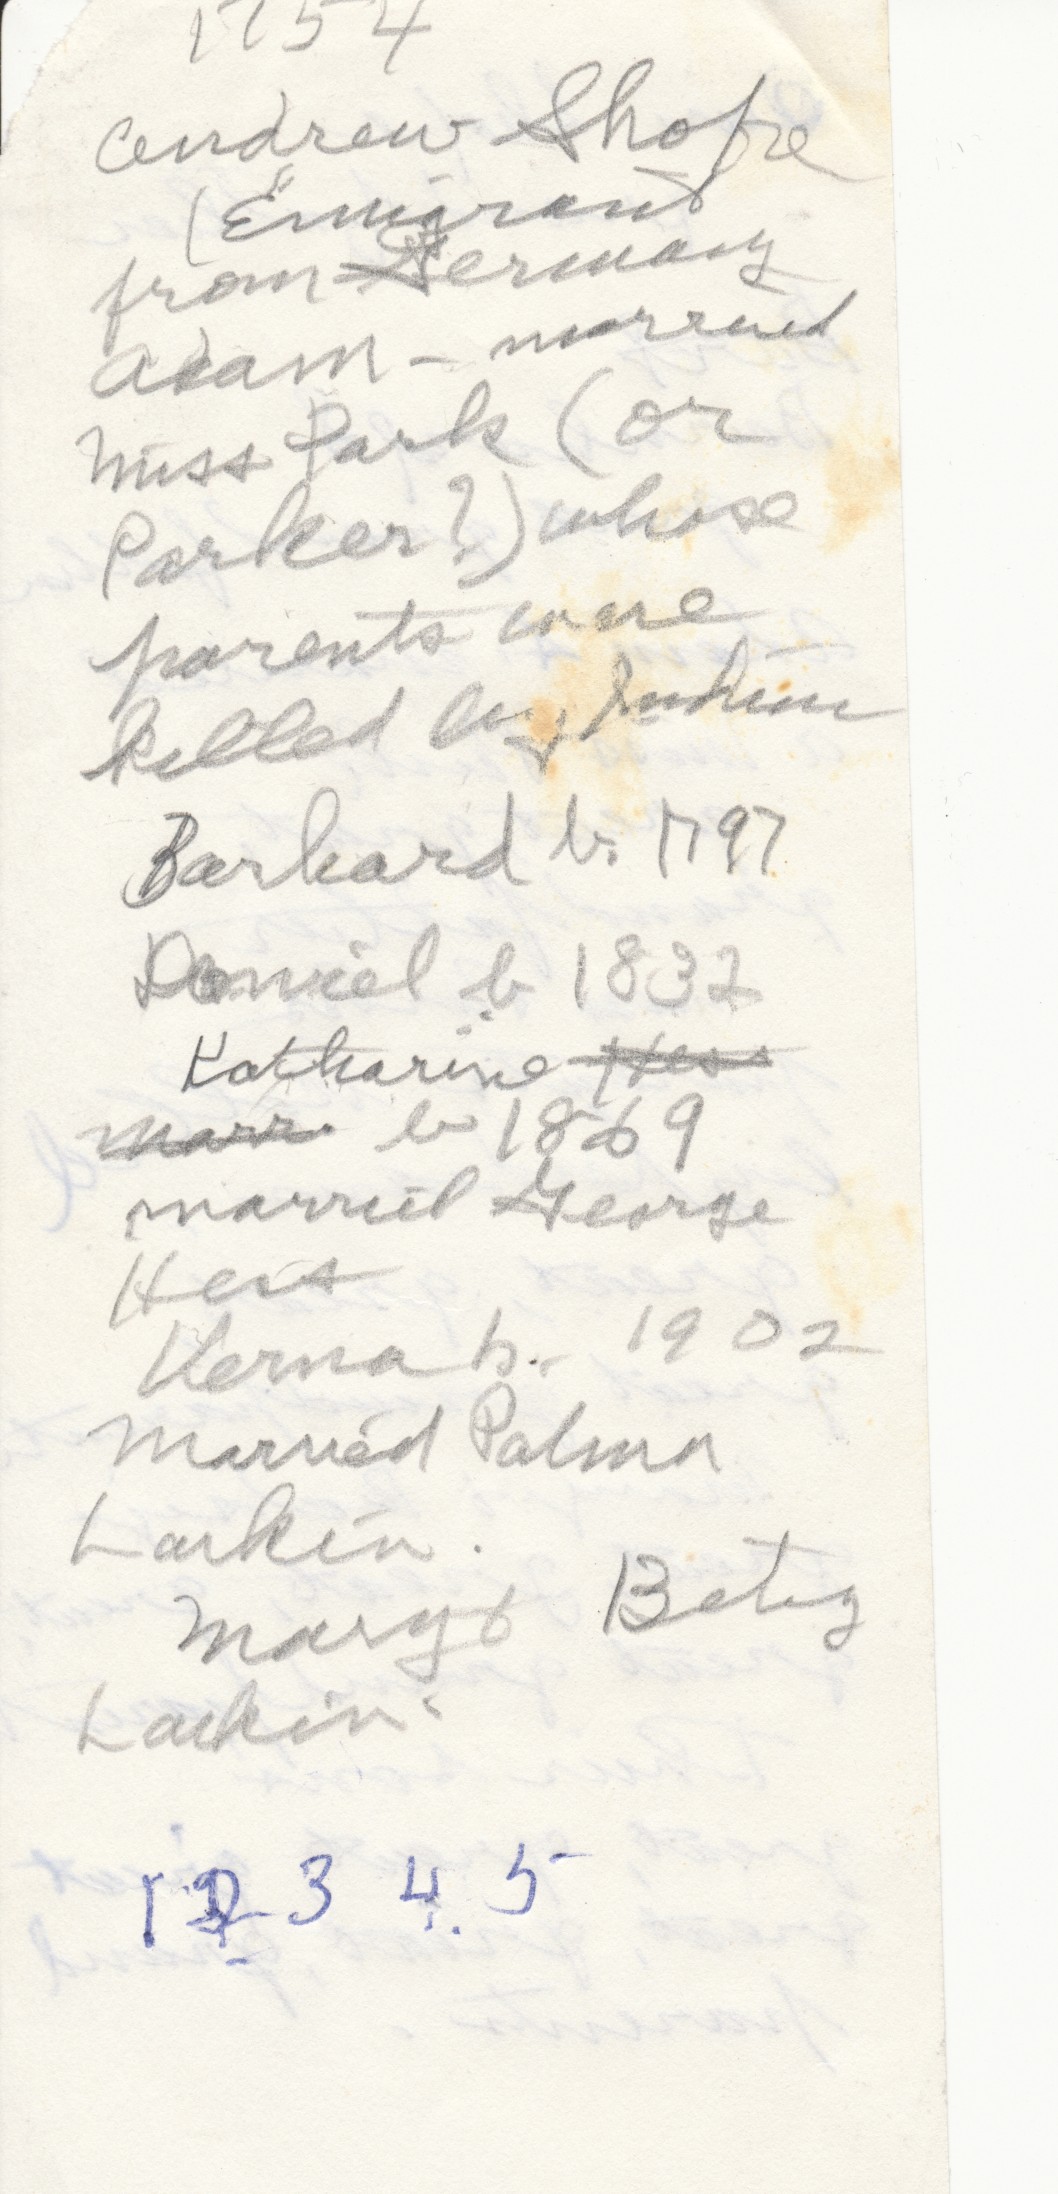 1754
Andrew Shofre
(Emigrant
from Germany
Adam - married
Miss Park (or
Parker?) whose
parents were
killed by Indian
Barhard b. 1797
Daniel b 1832
Katharine Hess
marr b 1869
married George
Hess
Verna b. 1902
Married Palmer
Larkin.
Mary & Betsy
Larkin.
1 2 3 4. 5